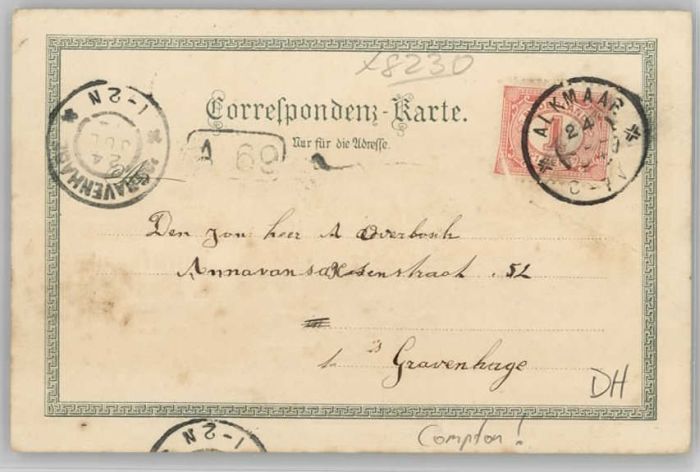 x8230
Correspondenz-Karte.
Nur für die Adresse.
A 69
ALKMAAR
24
'S GRAVENHAGE
24
JUL
1-2N
Den jon heer A Overbosch
Anna van saksenstraat 52
in
's Gravenhage
DH
Compton!
1-2N